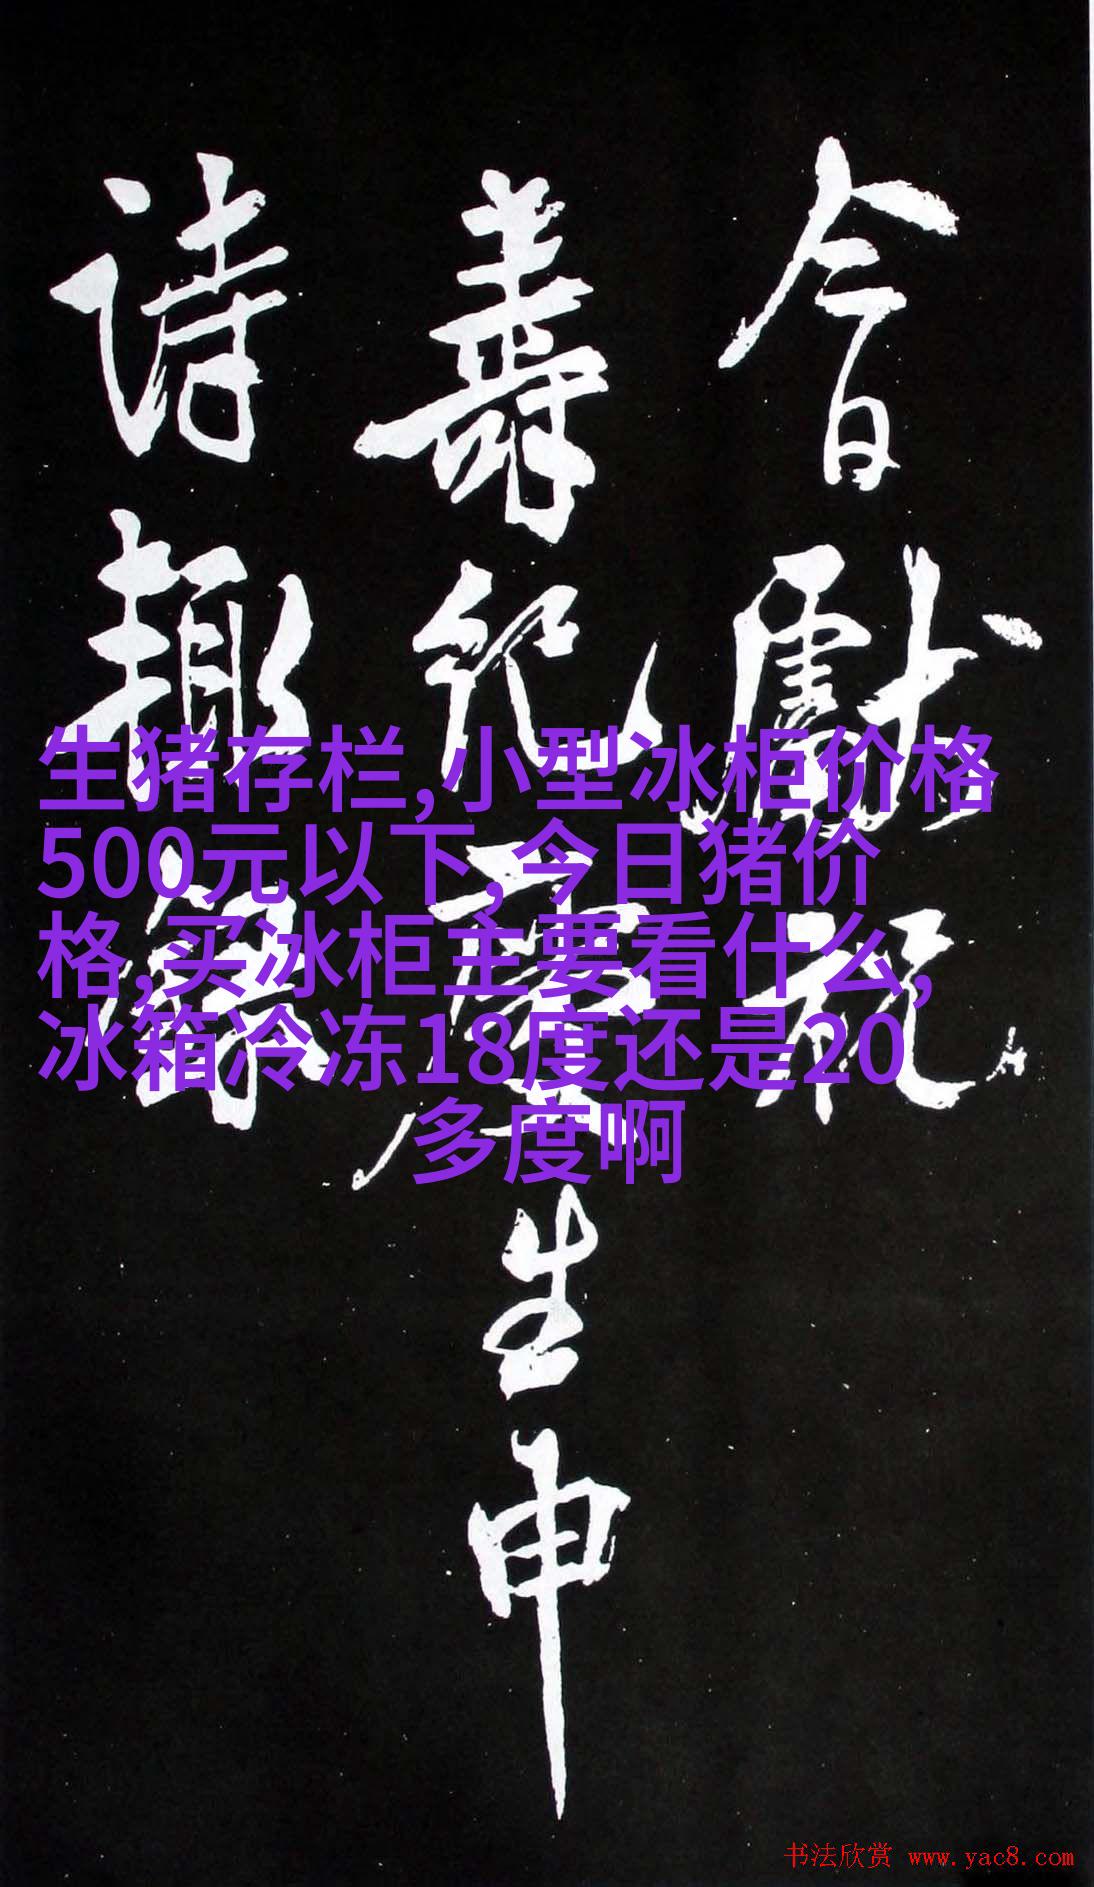 今日獻祝
壽紀慶生申
詩趣
生猪存栏,小型冰柜价格
500元以下,今日猪价
格,买冰柜主要看什么,
冰箱冷冻18度还是20
多度啊
书法欣赏 www.yac8.com